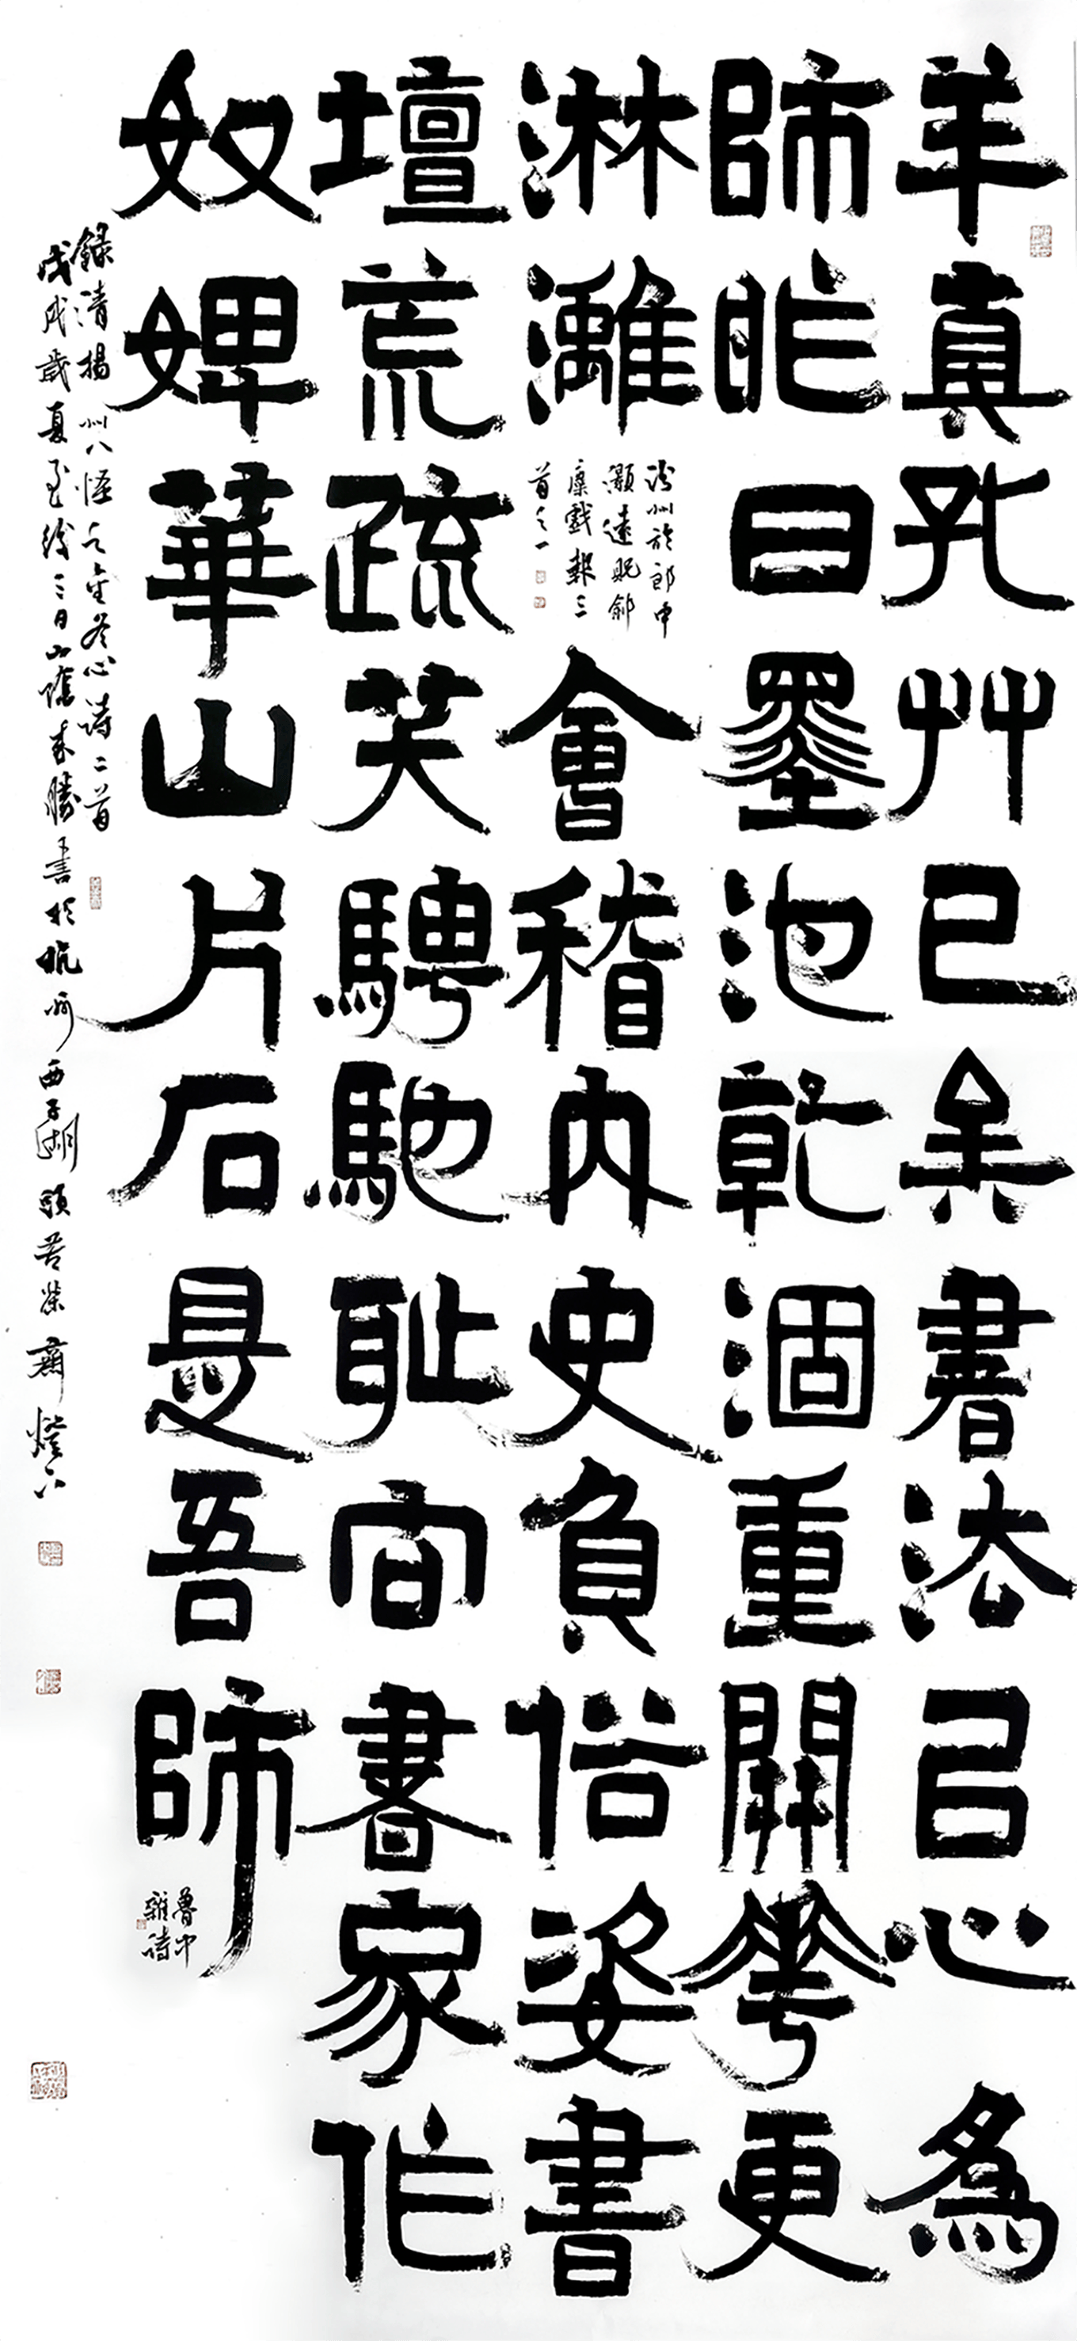 羊真孔艸已矣書法㠯心為
師昨日墨池乾涸重開花更
淋灕
汾州於郎中
灝遠貺鄃
麋戲報三
首之一
會稽內史負俗姿書
壇荒疏笑騁馳恥向書家作
奴婢華山片石是吾師
魯中
雜詩
錄清揚州八怪之金冬心詩二首
戊戌歲夏至後三日山陰勝書於杭州西子湖頭苦齋燈下